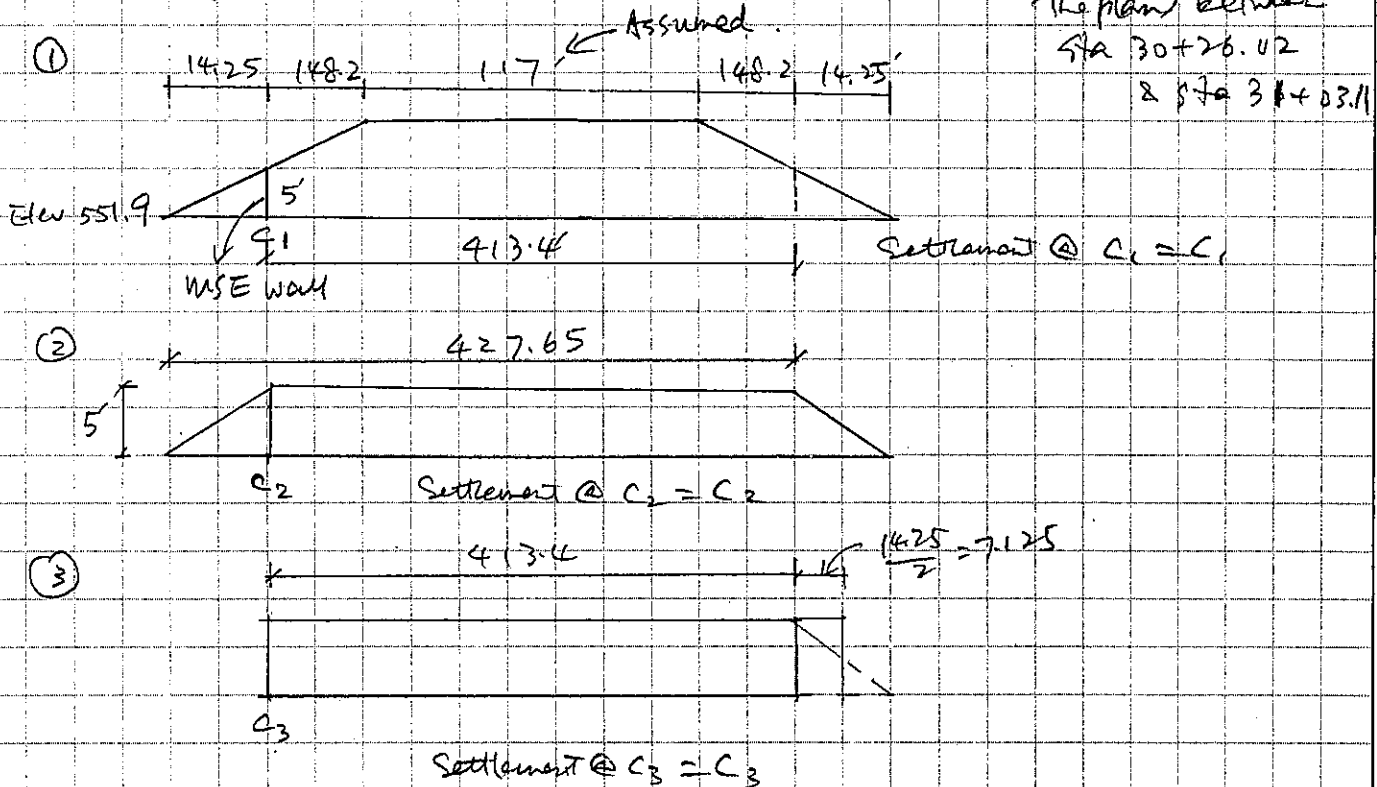 The plans between
Sta 30+26.02
& Sta 31+03.11
① Assumed.
14.25 148.2 117' 148.2 14.25'
Elev 551.9 5'
C1 413.4' Settlement @ C1 = C1
MSE wall
② 427.65
5'
C2 Settlement @ C2 = C2
③ 413.4 14.25/2 = 7.125
C3
Settlement @ C3 = C3